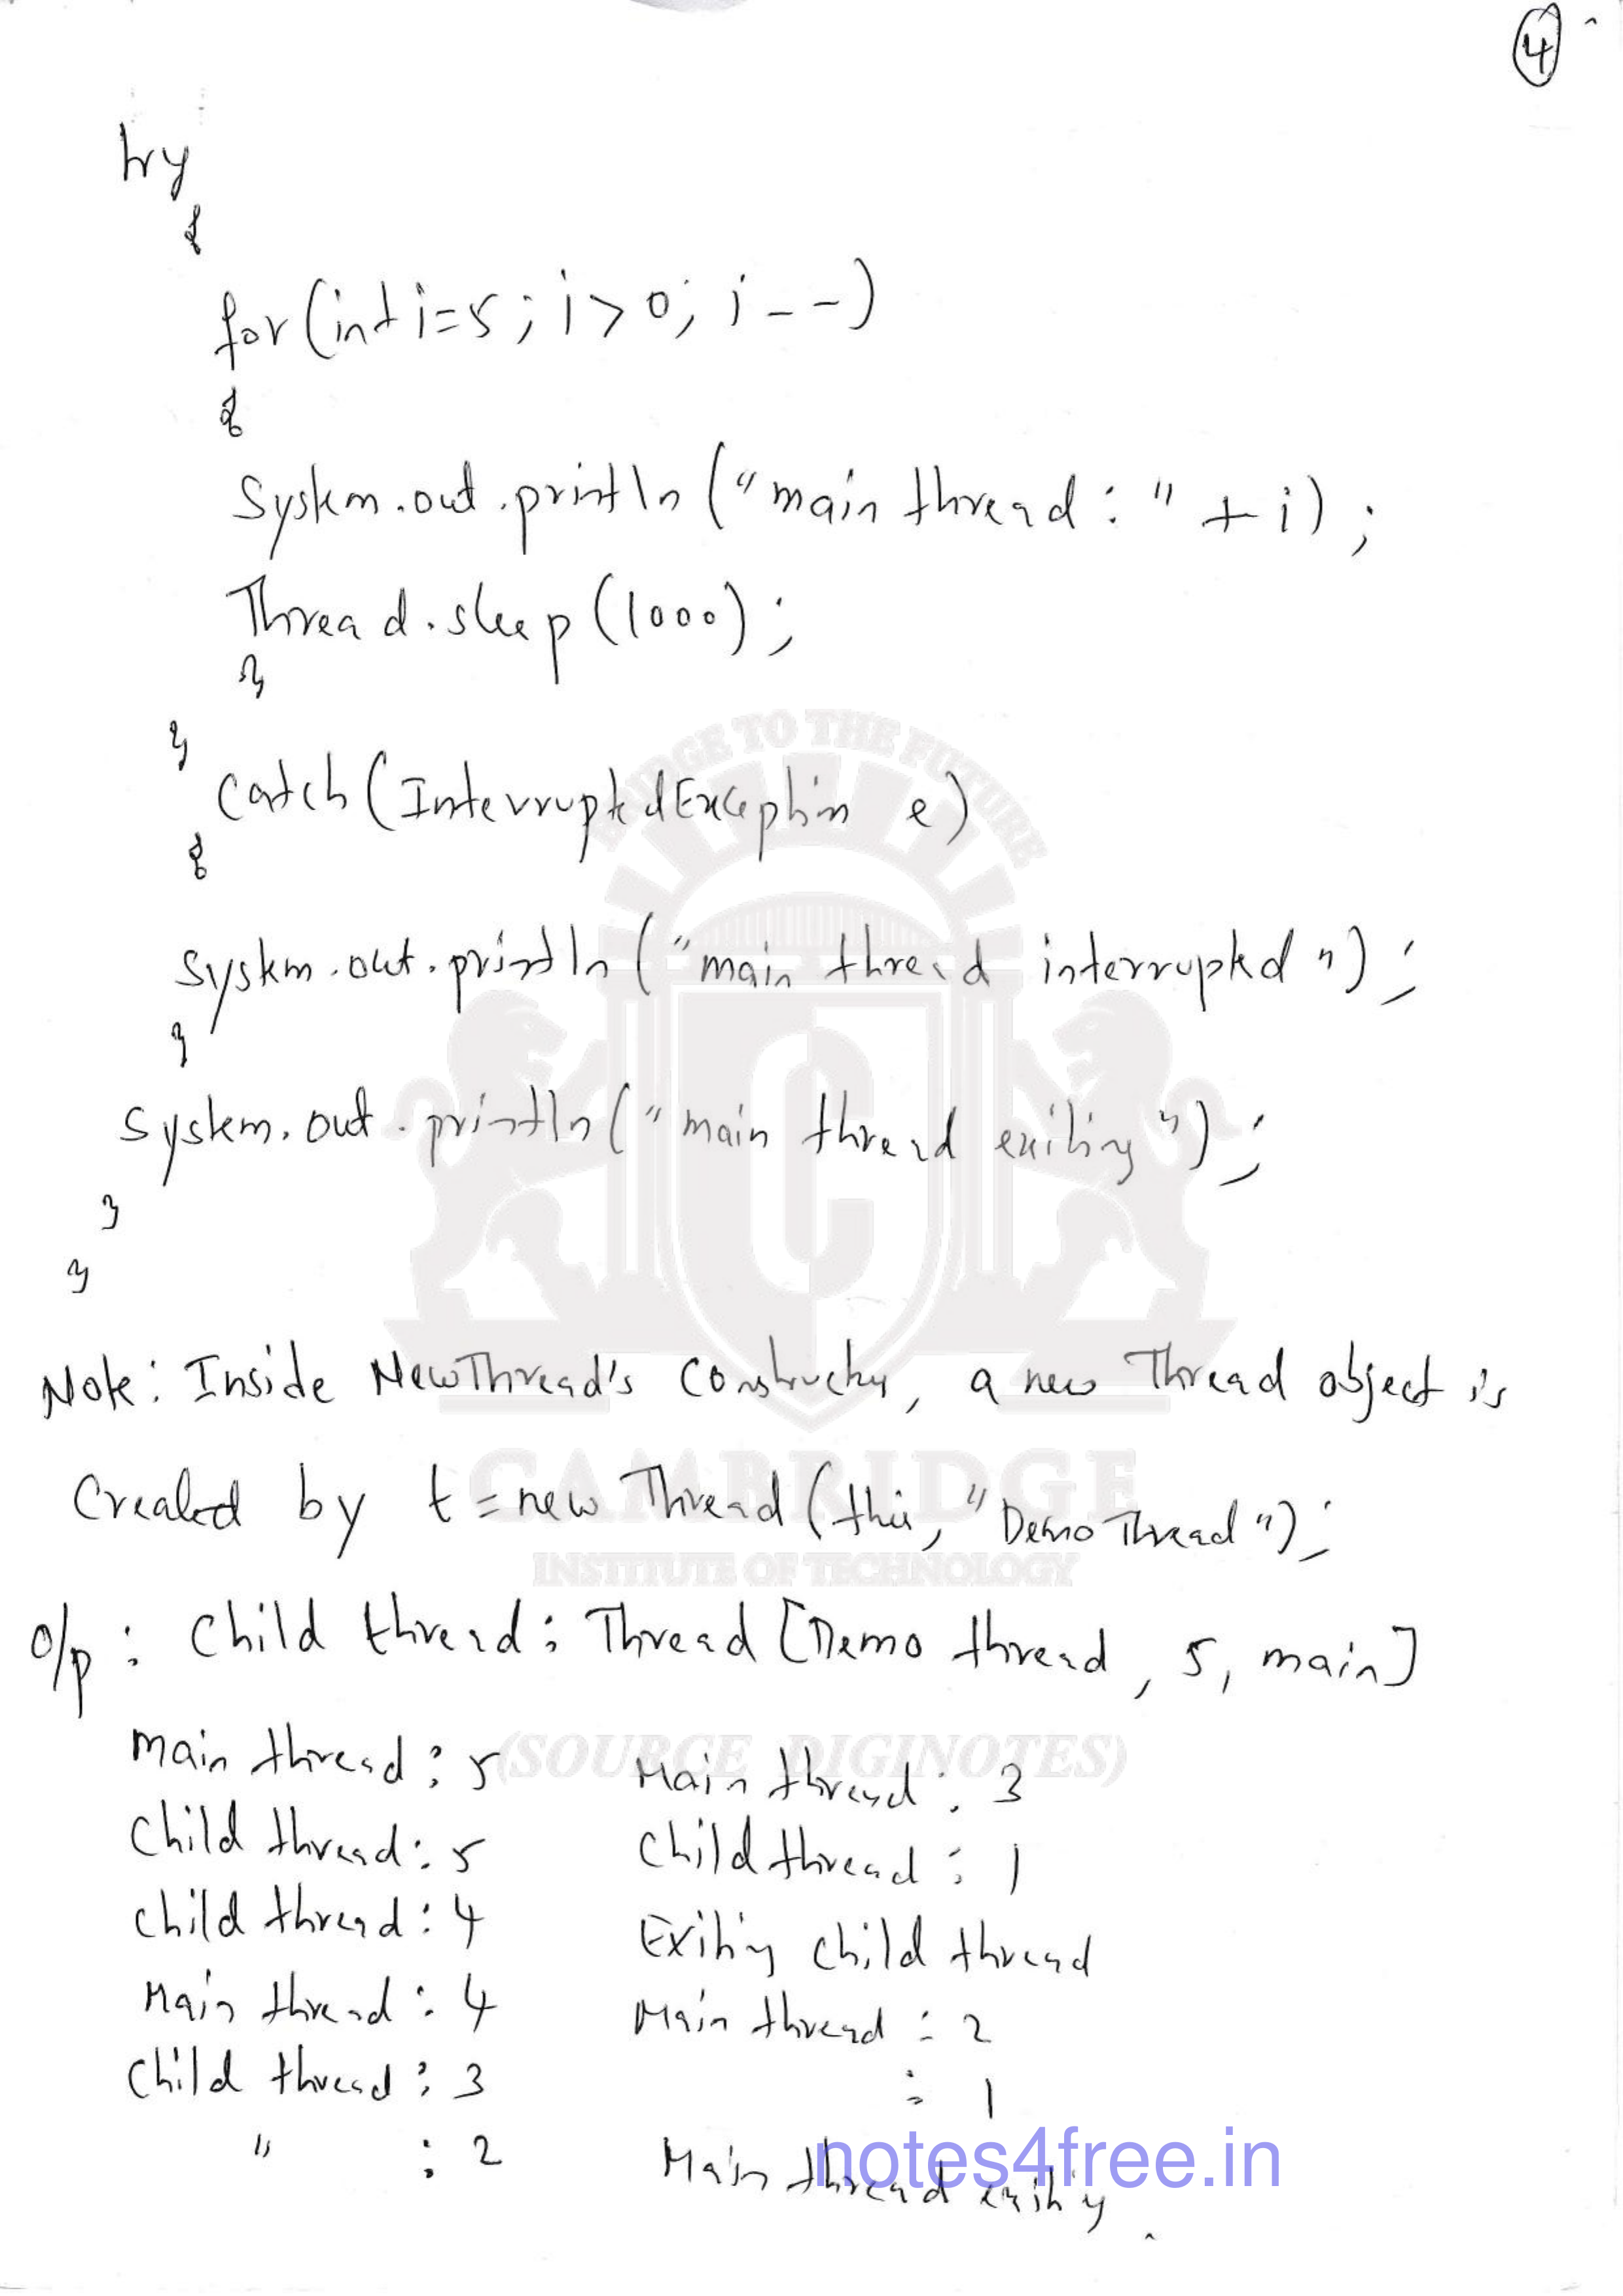 4
try
{
for(int i=5; i>0; i--)
{
System.out.println("main thread: " + i);
Thread.sleep(1000);
}
}
catch(InterruptedException e)
{
System.out.println("main thread interrupted");
}
System.out.println("main thread exiting");
}
}
Note: Inside NewThread's constructor, a new Thread object is
Created by t=new Thread(this, "Demo Thread");
o/p: Child thread: Thread[Demo thread, 5, main]
Main thread: 5
Child thread: 5
Child thread: 4
Main thread: 4
Child thread: 3
" : 2
Main thread: 3
Child thread: 1
Exiting child thread
Main thread: 2
: 1
Main thread exiting.
BRIDGE TO THE FUTURE
C
CAMBRIDGE
INSTITUTE OF TECHNOLOGY
(SOURCE DIGINOTES)
notes4free.in